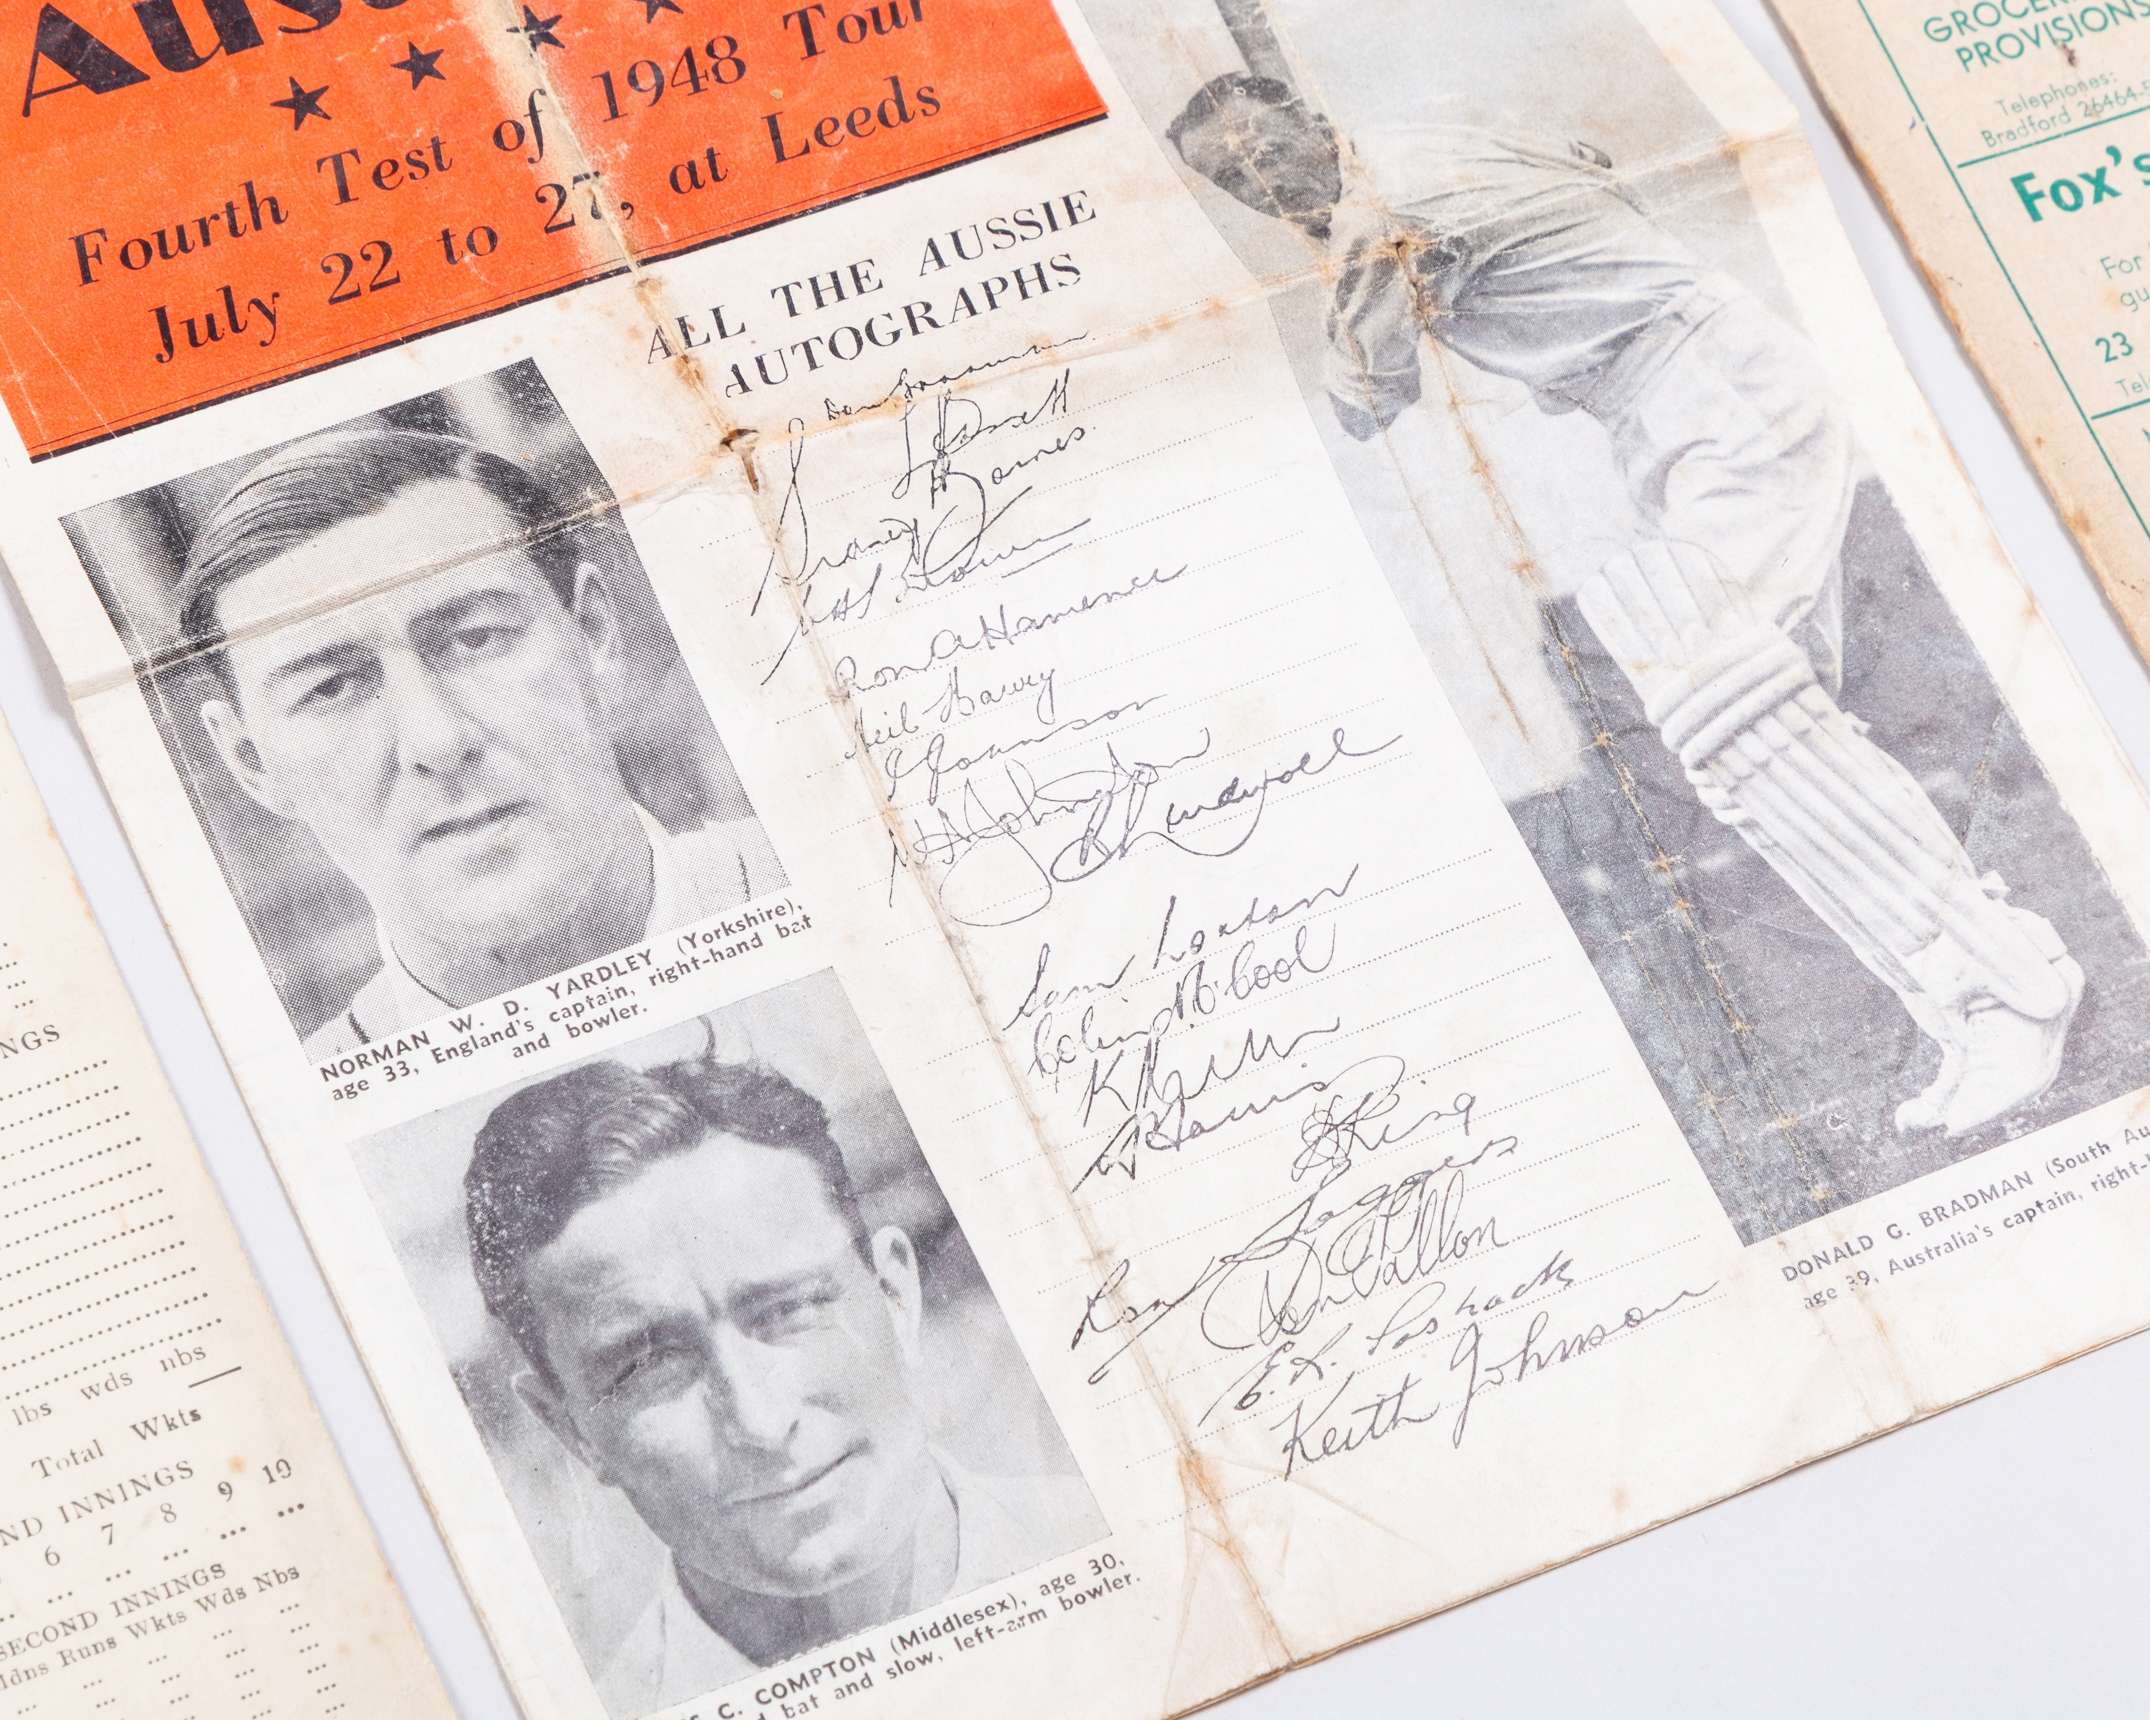 Aus
Fourth Test of 1948 Tour
July 22 to 27, at Leeds
ALL THE AUSSIE
AUTOGRAPHS
Don Bradman
Sidney G Barnes
Ron A Hamence
Neil Harvey
I Johnson
W A Johnston
R R Lindwall
Sam Loxton
Colin McCool
K R Miller
A R Morris
D Ring
Ron Saggers
Don Tallon
E. R. Toshack
Keith Johnson
NORMAN W. D. YARDLEY (Yorkshire),
age 33, England's captain, right-hand bat
and bowler.
C. COMPTON (Middlesex), age 30,
bat and slow, left-arm bowler.
DONALD G. BRADMAN (South Au
age 39, Australia's captain, right-
NGS
lbs wds nbs
Total Wkts
ND INNINGS
6 7 8 9 10
SECOND INNINGS
Mdns Runs Wkts Wds Nbs
GROCER
PROVISIONS
Telephones:
Bradford 26464-5
Fox's
For
gu
23
Tel